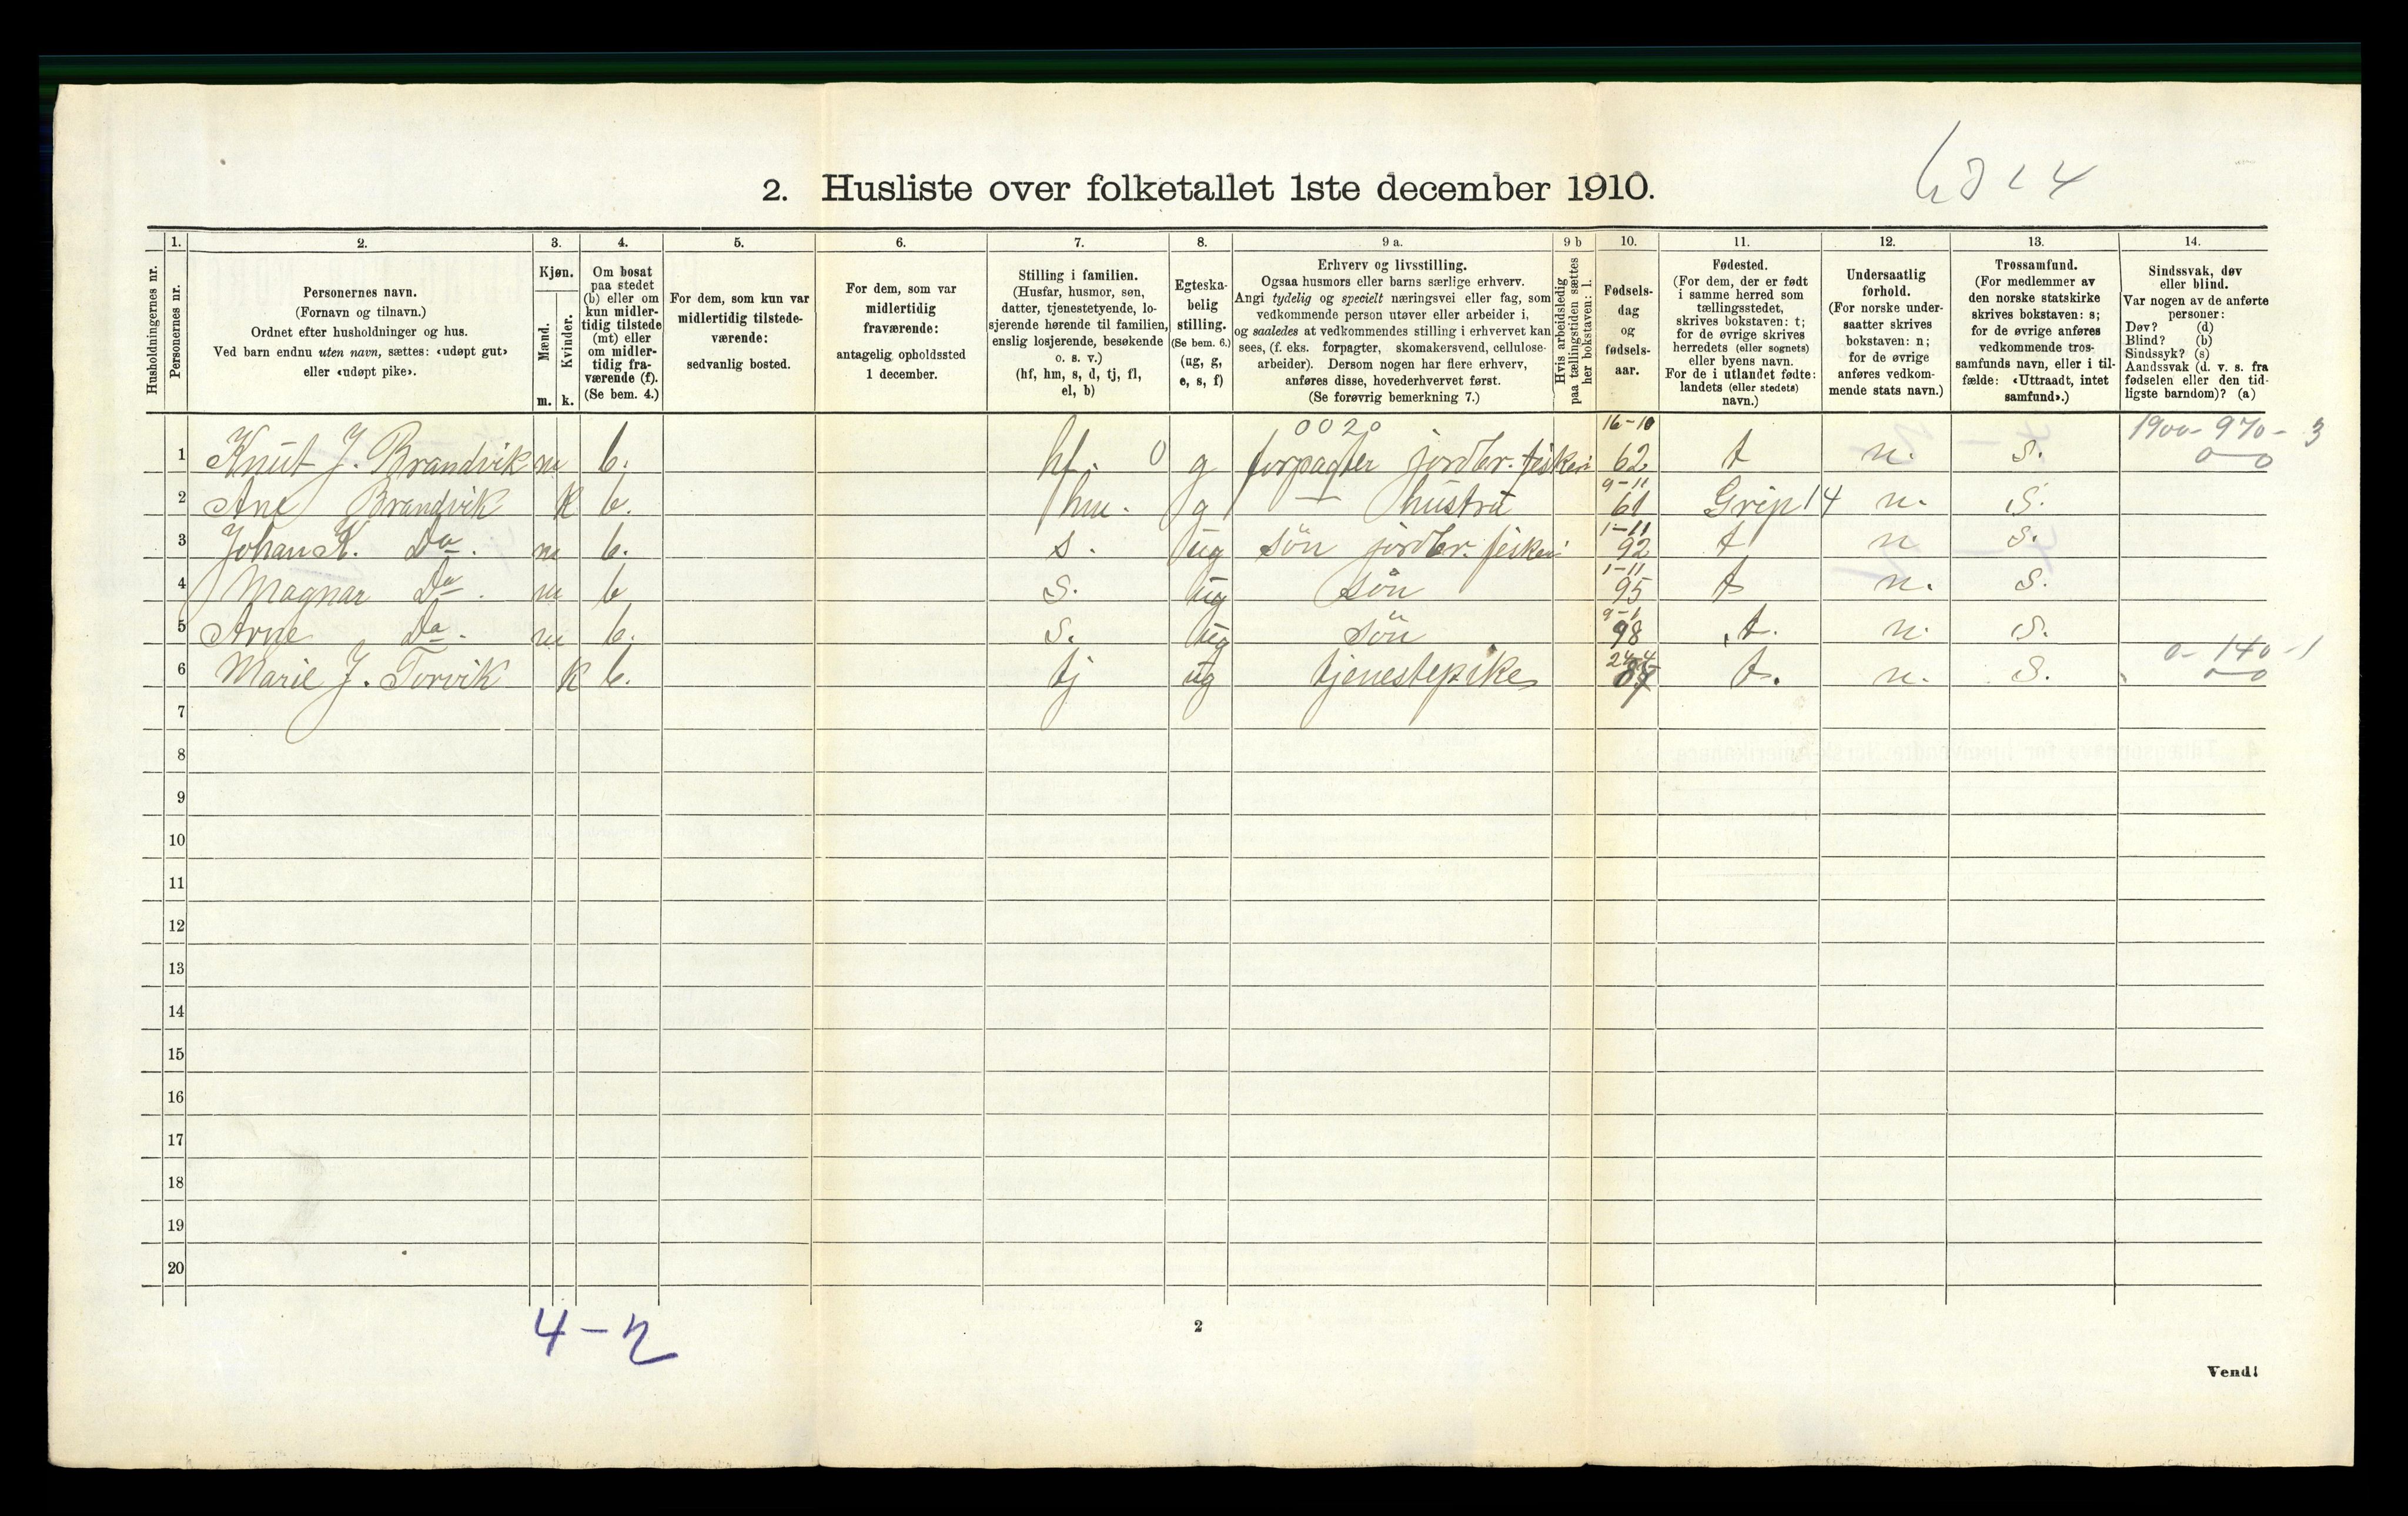 2. Husliste over folketallet 1ste december 1910.
1. 2. 3. 4. 5. 6. 7. 8. 9 a. 9 b 10. 11. 12. 13. 14.
Husholdningernes nr.
Personernes nr.
Personernes navn.
(Fornavn og tilnavn.)
Ordnet efter husholdninger og hus.
Ved barn endnu uten navn, sættes: «udøpt gut»
eller «udøpt pike».
Kjøn.
Mænd.
Kvinder.
m. k.
Om bosat
paa stedet
(b) eller om
kun midler-
tidig tilstede
(mt) eller
om midler-
tidig fra-
værende (f).
(Se bem. 4.)
For dem, som kun var
midlertidig tilstede-
værende:
sedvanlig bosted.
For dem, som var
midlertidig
fraværende:
antagelig opholdssted
1 december.
Stilling i familien.
(Husfar, husmor, søn,
datter, tjenestetyende, lo-
sjerende hørende til familien,
enslig losjerende, besøkende
o. s. v.)
(hf, hm, s, d, tj, fl,
el, b)
Egteska-
belig
stilling.
(Se bem. 6.)
(ug, g,
e, s, f)
Erhverv og livsstilling.
Ogsaa husmors eller barns særlige erhverv.
Angi tydelig og specielt næringsvei eller fag, som
vedkommende person utøver eller arbeider i,
og saaledes at vedkommendes stilling i erhvervet kan
sees, (f. eks. forpagter, skomakersvend, cellulose-
arbeider). Dersom nogen har flere erhverv,
anføres disse, hovederhvervet først.
(Se forøvrig bemerkning 7.)
Hvis arbeidsledig
paa tællingstiden sættes
her bokstaven: l.
Fødsels-
dag
og
fødsels-
aar.
Fødested.
(For dem, der er født
i samme herred som
tællingsstedet,
skrives bokstaven: t;
for de øvrige skrives
herredets (eller sognets)
eller byens navn.
For de i utlandet fødte:
landets (eller stedets)
navn.)
Undersaatlig
forhold.
(For norske under-
saatter skrives
bokstaven: n;
for de øvrige
anføres vedkom-
mende stats navn.)
Trossamfund.
(For medlemmer av
den norske statskirke
skrives bokstaven: s;
for de øvrige anføres
vedkommende tros-
samfunds navn, eller i til-
fælde: «Uttraadt, intet
samfund».)
Sindssvak, døv
eller blind.
Var nogen av de anførte
personer:
Døv? (d)
Blind? (b)
Sindssyk? (s)
Aandssvak (d. v. s. fra
fødselen eller den tid-
ligste barndom)? (a)
0020 16-10 1900-970-3
1 Knut J. Brandvik m b. hf. 0 g forpagter jordbr. fiskeri 62 t n. s. 0-0
9-11
2 Ane Brandvik k b. hm. g — hustru 61 Grip 14 n. s.
1-11
3 Johan K. Do. m b. s. ug søn jordbr. fiskeri 92 t n s.
1-11
4 Magnar Do. m b s. ug søn 95 t n. s.
9-1
5 Arne Do. m b. s. ug søn 98 t. n. s.
24-4 0-140-1
6 Marie J. Torvik k b. tj ug tjenestepike t. n. s. 0-0
7
8
9
10
11
12
13
14
15
16
17
18
19
20
4-2
2
Vend!